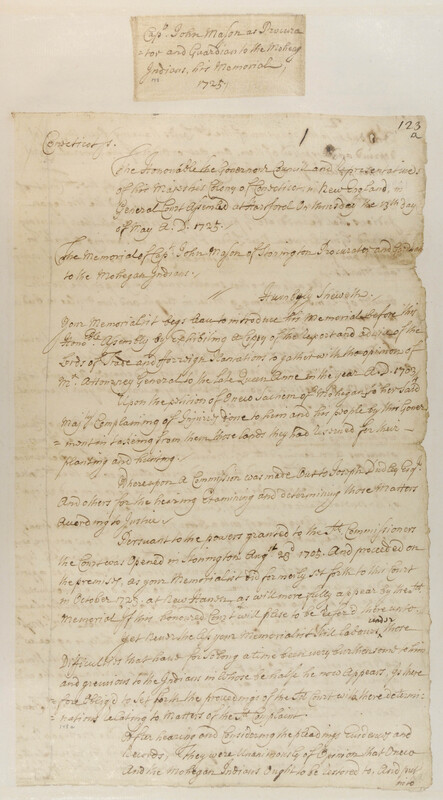 Capt. John Mason as Procura
=tor and Guardian to the Moheg
Indians, his Memorial,
1725,
123
a
Conecticut ss.
The Honorable the Governour Council and representatives
of his Majesties Colony of Conecticut in New England, in
General Court Assembled at Hartford On thursday the 13th day
of May A. D. 1725.
The Memorial of Capt. John Mason of Stonington Procurator and
to the Mohegan Indians.
Humbly Sheweth.
Your Memorialist begs leave to introduce this Memorial before this
Honble. Assembly by exhibiting a Copy of the report and advice of the
Lords of Trade and forreigh Plantations together with the opinion of
Mr. Attourney General to the Late Queen Anne in the year A.D. 1703
Upon the petition of Oneco Sachem of Mohegan to her Said
Majty. Complaining of Injuries done to him and his people by this Gover
=ment in taking from them those lands they had reserved for their
planting and hunting.
Whereupon a Commission was made Out to Joseph Dudley Esqr.
And others for the hearing Examining and determining those Matters
According to Justice.
Persuant to the powers granted to the Sd. Commissioners
the Court was Opened in Stonington Augst. 23d 1705. And proceeded on
the premises, as your Memorialist did formerly set forth to this Court
in October 1723, at New Haven, as will more fully appear by the Sd.
Memorial if this honoured Court will please to be referd thereunto
yet Nevertheless your Memorialist Still labours under those
Difficulties that have for So long a time been very burthensome
and grevious to the Indians in whose behalf he now Appears, Is there
fore Obliged to Set forth the proceedings of the Sd. Court and there determi=
nations relating to Matters of the Sd. Complaint.
After hearing and Considering the pleadings Evidences and
Records, They were Unanimously of Opinion that Oneco
And the Mohegan Indians Ought to be restored to, And